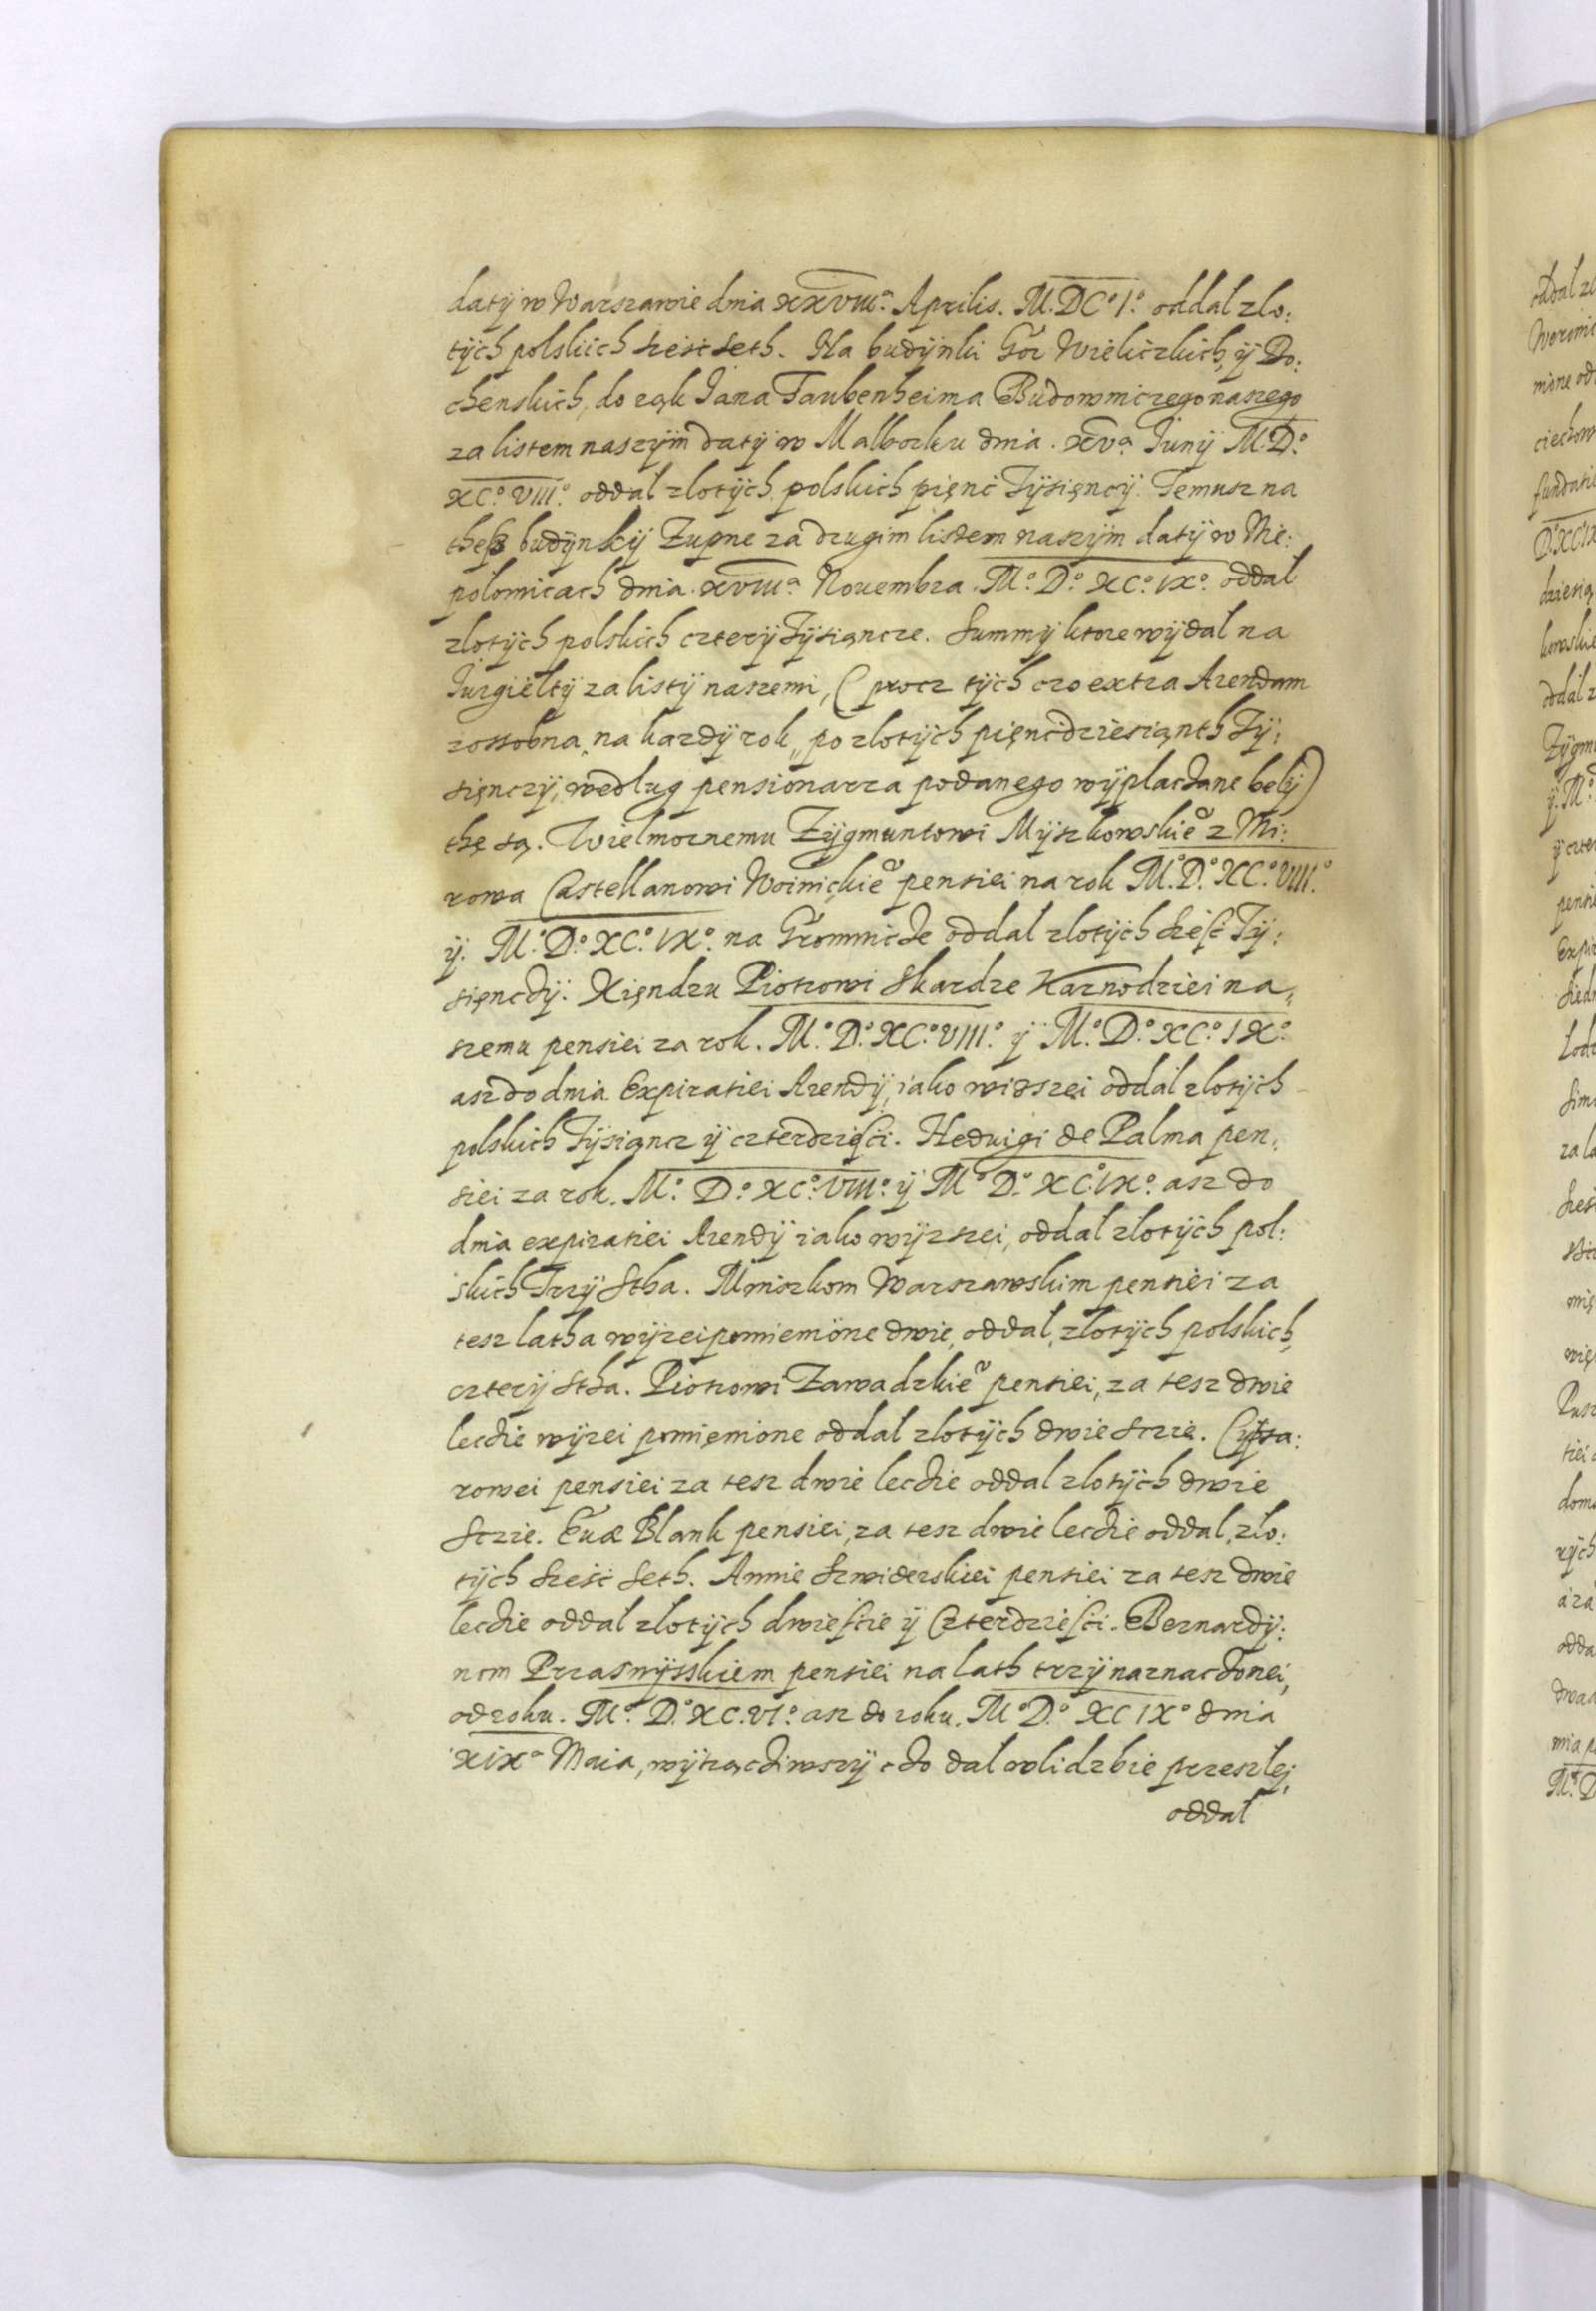 datÿ w Warszawie dnia XXVIII.ª Aprilis. M.DC.º I.º oddal zlo:
tÿch polskich szesc seth. Na budÿnki Gor Wieliczkich, ÿ Bo:
chenskich, do rąk Jana Taubenheima Budowniczego naszego
za listem naszÿm datÿ w Malborku dnia. XV.ª Junÿ M.D.º
XC.º VIII.º oddal zlotÿch polskich pięnc Tÿsięncÿ. Temusz na
thesz budÿnkÿ Zupne za drugim listem naszÿm datÿ w Nie:
polomicach dnia. XVIII.ª Nouembra. M.º D.º XC.º IX.º oddal
zlotÿch polskich czterÿ Tÿsiąncze. Summÿ ktore wÿdal na
Jurgieltÿ za listÿ naszemi, (procz tÿch czo extra Arendam
zossobna, na kazdÿ rok, po zlotÿch pięncdziesiąnth Tÿ:
sięnczÿ, wedlug pensionarza podanego wÿplaczane belÿ)
thę są. Wielmoznemu Zÿgmuntowi Mÿszkowskieº z Mi:
rowa Castellanowi Woinickieº pensiei na rok M.º D.º XC.º VIII.º
ÿ. M.º D.º XC.º IX.º na Gromnicze oddal zlotÿch szesc Tÿ:
sięnczÿ. Xięndzu Piotrowi Skardze Kaznodziei na,
szemu pensiei za rok. M.º D.º XC.º VIII.º ÿ M.º D.º XC.º IX.º
asz do dnia Expiratiei Arendÿ, iako wisszei oddal zlotÿch
polskich Tÿsiąncz ÿ czterdziesci. Heduigi de Palma pen,
siei za rok. M.º D.º XC.º VIII.º ÿ M.º D.º XC.º IX.º asz do
dnia expiratiei Arendÿ iako wÿzszei, oddal zlotÿch pol:
skich Trzÿ Stha. Mniszkom Warszawskim pensiei za
tesz latha wÿzei pomienione dwie, oddal, zlotÿch polskich,
czterÿ stha. Piotrowi Zawadzkieº pensiei, za tesz dwie
leczie wÿzei pomięnione oddal zlotÿch dwie sczie. Cÿtta:
rowei pensiei za tesz dwie leczie oddal zlotÿch dwie
sczie. Euæ Blank pensiei, za tesz dwie leczie oddal, zlo:
tÿch szesc seth. Annie Szwiderskiei pensiei za tesz dwie
leczie oddal zlotÿch dwiescie ÿ Czterdziesci. Bernardÿ:
nom Przasnÿsskiem pensiei na lath trzÿ naznaczonei,
od roku. M.º D.º XC.VI.º asz do roku. M.º D.º XC IX.º dnia
XIX.ª Maia, wÿtrącziwszÿ czo dal wlidzbie przeszlej,
oddal